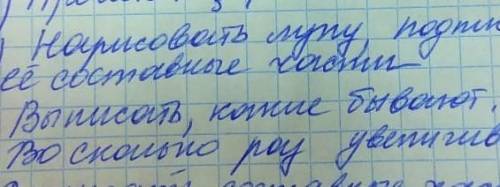 Нарисовать лупу, подпи
её составные части
Выписать, какие бывают
Во сколько раз увеличив
составные